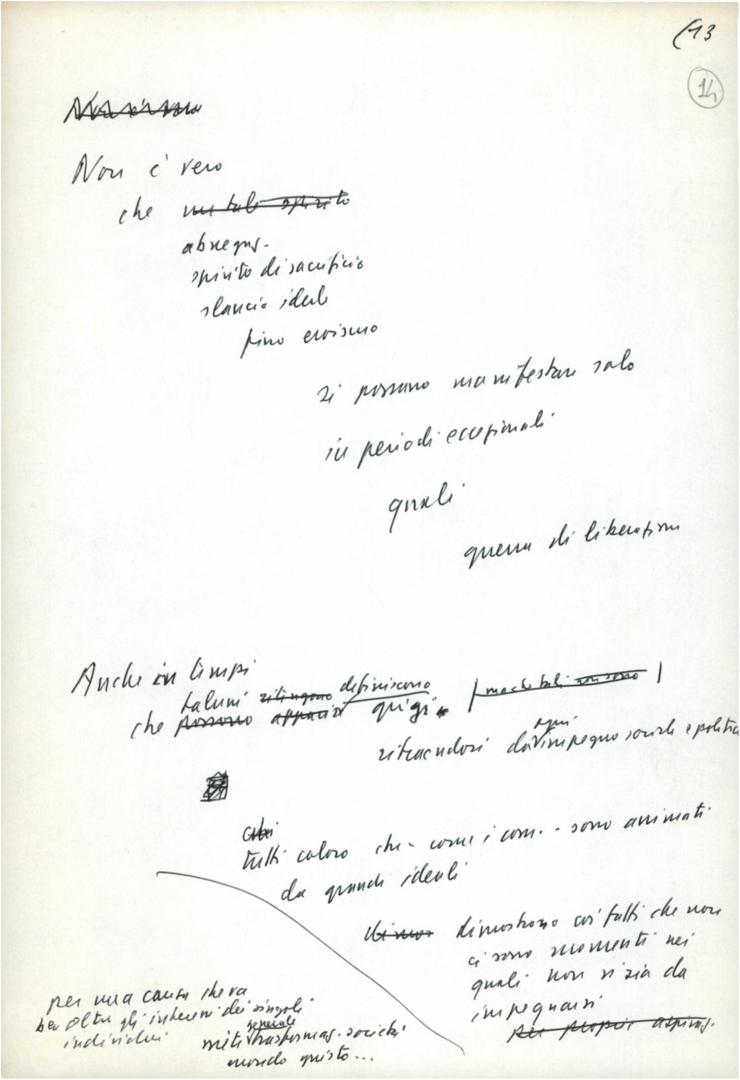 (13
14
Non è vero
che un tale spirito
abnegaz.
spirito di sacrificio
slancio ideale
fino eroismo
si possano manifestare solo
in periodi eccezionali
quali
guerra di liberazione
Anche in tempi
taluni ritengono definiscono
che possono apparir grigi
ritraendosi da ogni impegno sociale e politico
tutti coloro che - come i com. - sono animati
da grandi ideali
dimostrano coi fatti che non
ci sono momenti nei
quali non vi sia da
impegnarsi
per proprie aspiraz.
per una causa che va
ben oltre gli interessi dei singoli
individui
generale
miti trasformaz. società
mondo giusto...